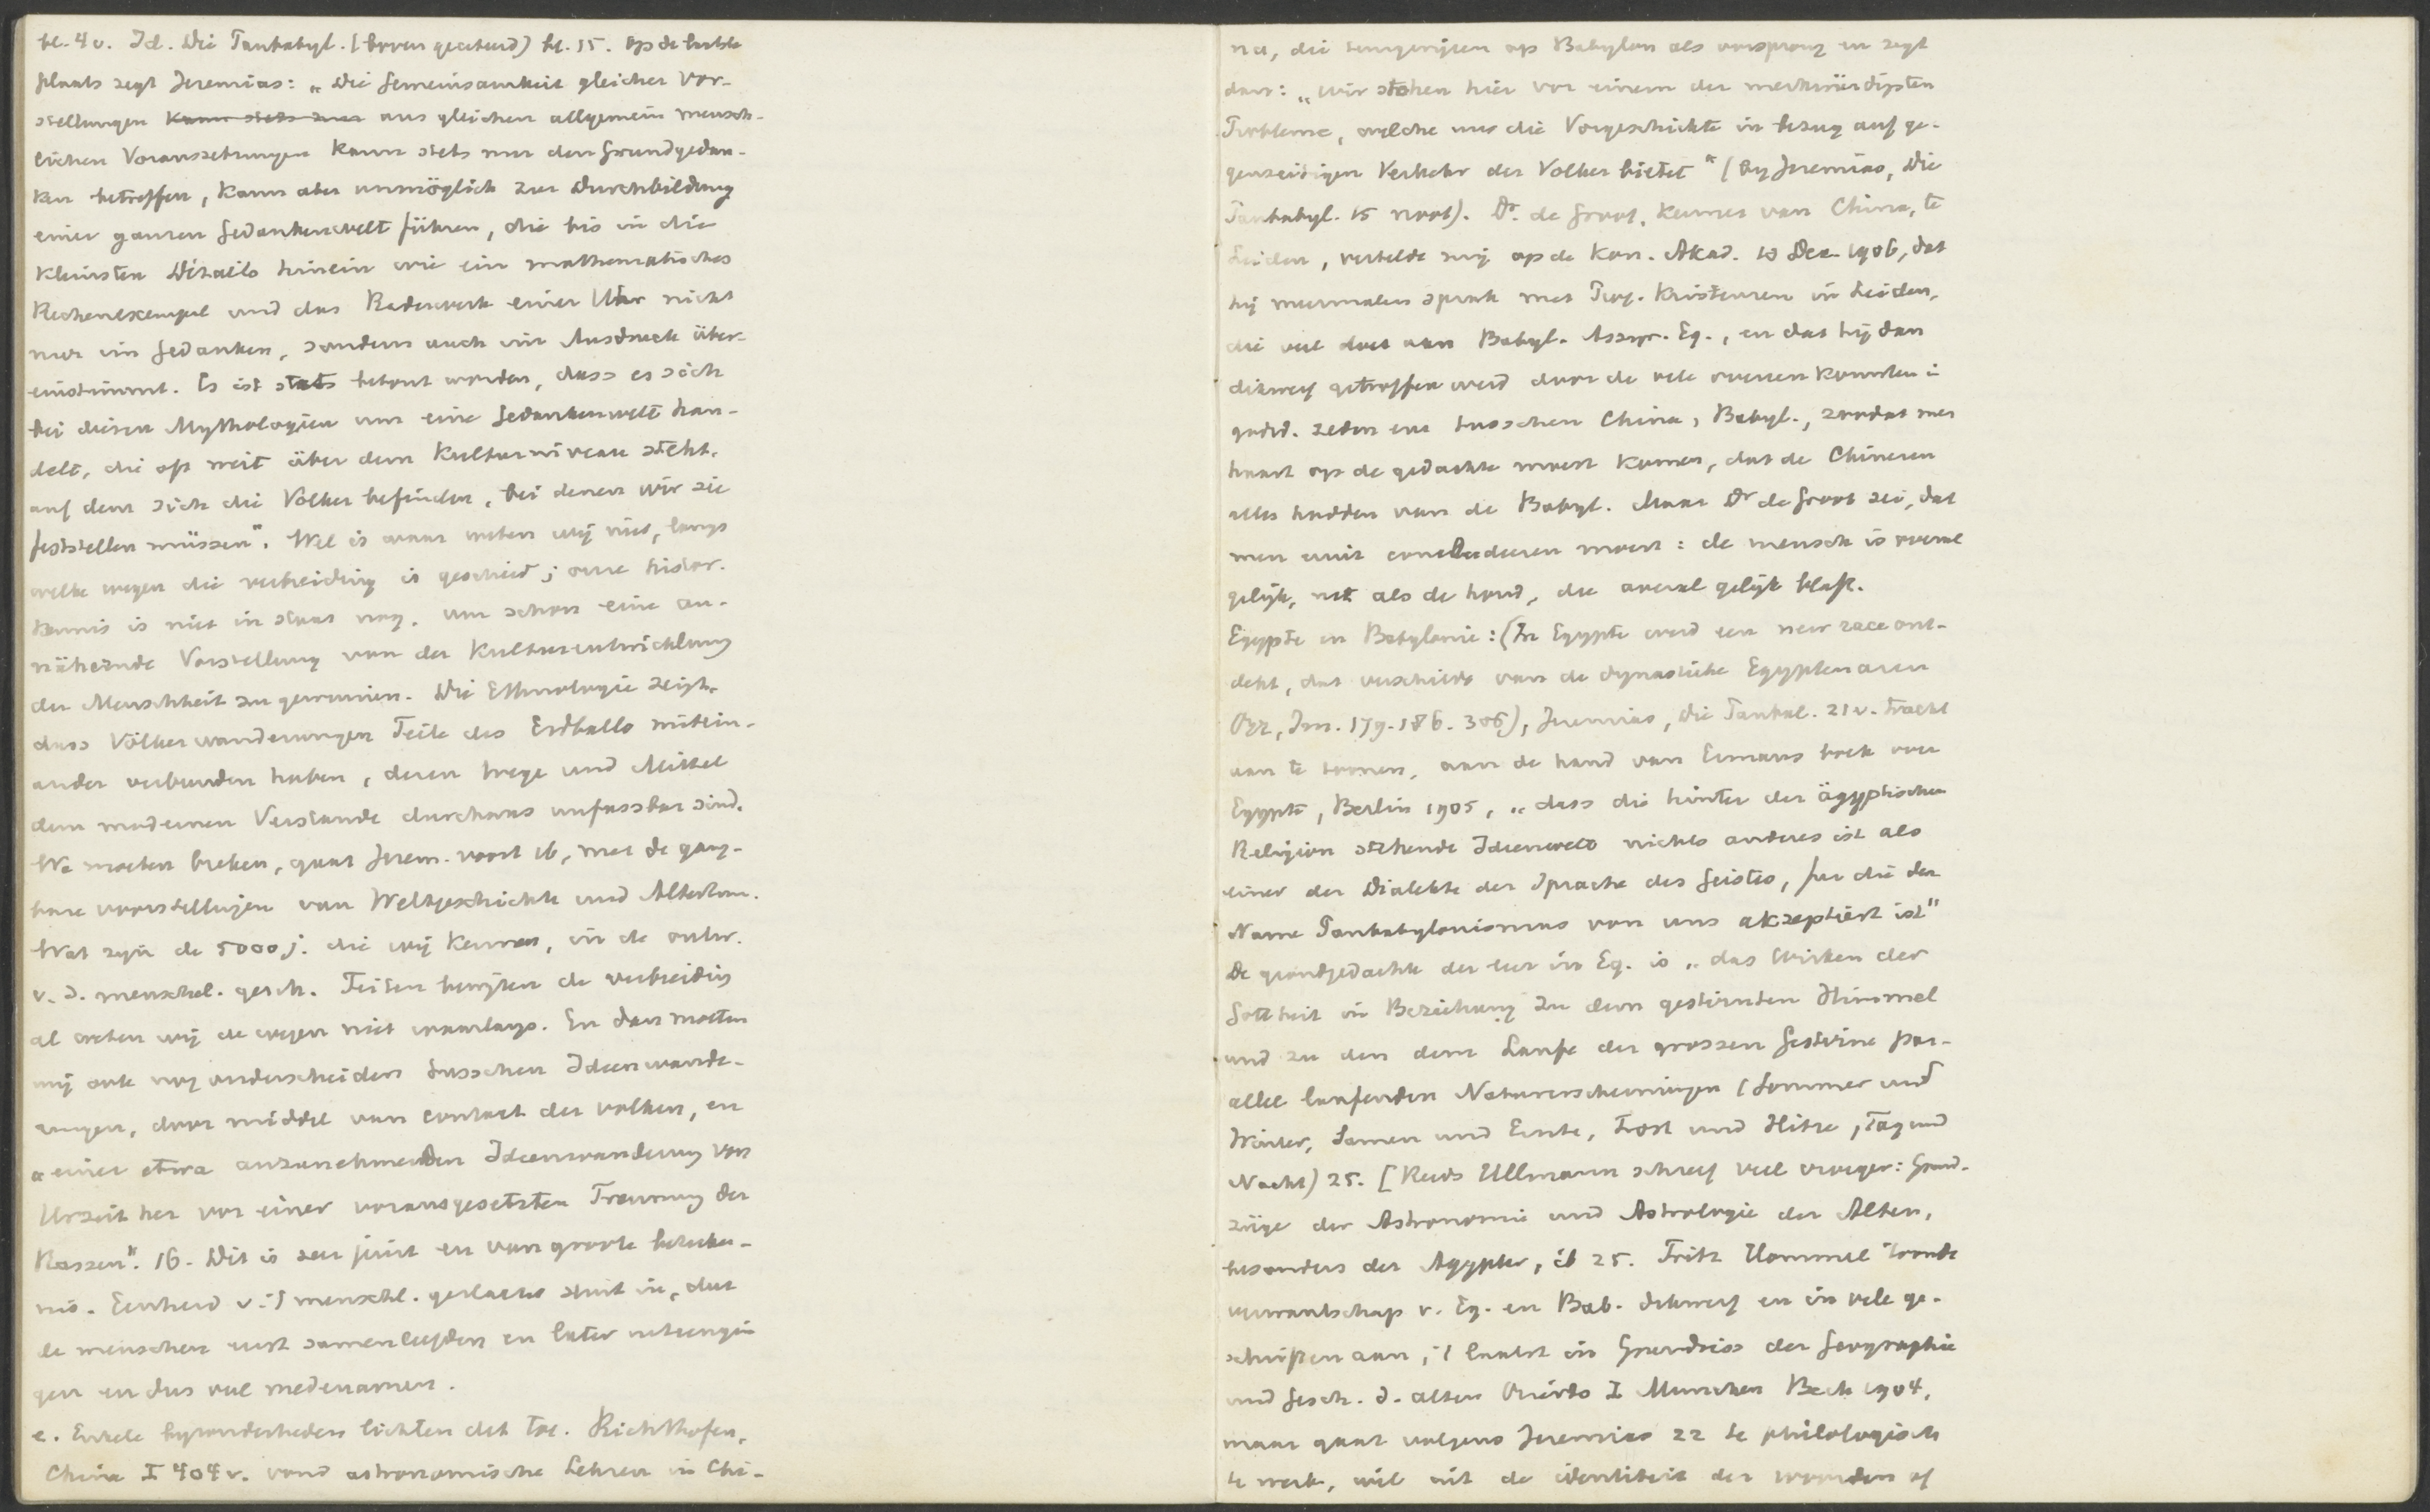 bl. 4 v. Id. Die Panbabyl. (boven geciteerd) bl. 15. Op de laatste
plaats zegt Jeremias: „Die Gemeinsamkeit gleicher Vor-
stellungen aus gleichen allgemein mensch-
lichen Voraussetzungen kann stets nur den Grundgedan-
ken betreffen, kann aber unmöglich zur Durchbildung
einer ganzen Gedankenwelt führen, die bis in die
kleinsten Details hinein wie ein mathematisches
Rechenexempel und das Räderwerk einer Uhr nicht
nur im Gedanken, sondern auch im Ausdruck über-
einstimmt. Es ist stets betont worden, dass es sich
bei diesen Mythologien um eine Gedankenwelt han-
delt, die oft weit über dem Kulturniveau steht,
auf dem sich die Völker befinden, bei denen wir sie
feststellen müssen". Wel is waar weten wij niet, langs
welke wegen die verbreiding is geschied; onze histor.
kennis is niet in staat nog, um schon eine an-
nähernde Vorstellung von der Kulturentwicklung
der Menschheit zu gewinnen. Die Ethnologie zeigt,
dass Völkerwanderungen Teile des Erdballs mitein-
ander verbunden haben, deren Wege und Mittel
dem modernen Verstande durchaus unfassbar sind.
We moeten breken, gaat Jerem. voort 16, met de gang-
bare voorstellingen van Weltgeschichte und Altertum.
Wat zijn de 5000 j. die wij kennen, in de ontw.
v. d. menschel. gesch. Feiten bewijzen de verbreiding
al weten wij de wegen niet waarlangs. En dan moeten
wij ook nog onderscheiden tusschen Ideenwande-
rungen, door middel van contact der volken, en
„einer etwa anzunehmenden Ideenwanderung von
Urzeit her vor einer vorausgesetzten Trennung der
Rassen". 16. Dit is zeer juist en van groote beteeke-
nis. Eenheid v. 't menschl. geslacht sluit in, dat
de menschen eerst samenleefden en later uiteengin
gen en dus veel medenamen.
e. Enkele byzonderheden lichten dat toe. Richthofen,
China I 404 v. vond astronomische Lehren in Chi-
na, die teruggrijpen op Babylon als oorsprong en zegt
dan: „wir stehen hier vor einem der merkwürdigsten
Probleme, welche uns die Vorgeschichte in bezug auf ge-
genseitigen Verkehr der Volker bietet" (by Jeremias, Die
Panbabyl. 15 noot). Dr. de Groot, kenner van China, te
Leiden, vertelde mij op de Kon. Akad. 10 Dec. 1906, dat
hij meermalen sprak met Prof. Kristensen in Leiden,
die veel doet aan Babyl. Assyr. Eg., en dat hij dan
dikwerf getroffen werd door de vele overeenkomsten in
godsd. zeden enz tusschen China, Babyl., zoodat men
haast op de gedachte moest komen, dat de Chineezen
alles hadden van de Babyl. Maar Dr de Groot zei, dat
men eruit concludeeren moest: de mensch is overal
gelijk, net als de hond, die overal gelijk blaft.
Egypte en Babylonie: (In Egypte werd een new race ont-
dekt, dat verschilde van de dynastieke Egyptenaren
Orr, Inn. 179. 186. 306), Jeremias, Die Panbab. 21 v. tracht
aan te toonen, aan de hand van Ermans boek over
Egypte, Berlin 1905, „dass die hinter der ägyptischen
Religion stehende Ideenwelt nichts anderes ist als
einer der Dialekte der Sprache des Geistes, fur die der
Name Panbabylonismus von uns akzeptiert ist"
De grondgedachte der leer in Eg. is „das Wirken der
Gottheit in Beziehung zu dem gestirnten Himmel
und zu den dem Laufe der grossen Gestirne par-
allel laufenden Naturerscheinungen (Sommer und
Winter, Samen und Ernte, Frost und Hitze, Tag und
Nacht) 25. [Reeds Ullmann schreef veel vroeger: Grund-
züge der Astronomie und Astrologie der Alten,
besonders der Agypter, ib 25. Fritz Hommel toonde
verwantschap v. Eg. en Bab. dikwerf en in vele ge-
schriften aan, 't laatst in Grundriss der Geographie
und Gesch. d. alten Orients I Munchen Beck 1904,
maar gaat volgens Jeremias 22 te philologisch
te werk, wil uit de identiteit der woorden of